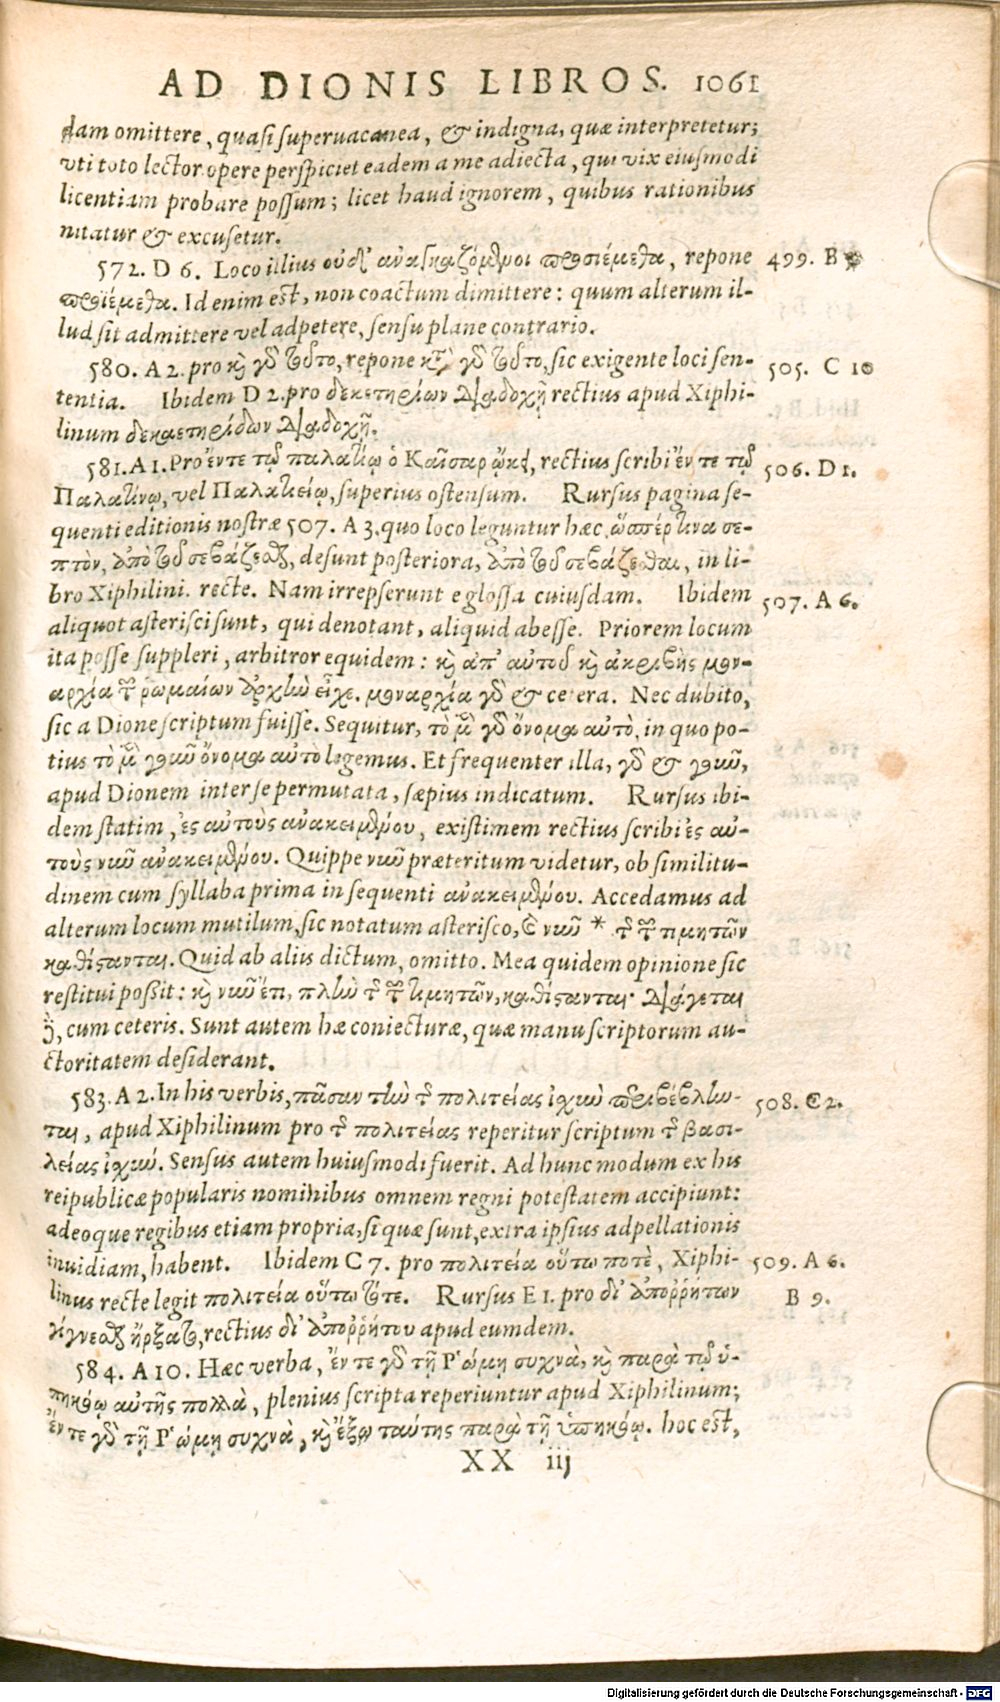 AD DIONIS LIBROS. 1061
dam omittere, quasi superuacanea, & indigna, quæ interpretetur;
vti toto lector opere perspiciet eadem a me adiecta, qui vix eiusmodi
licentiam probare possum; licet haud ignorem, quibus rationibus
nitatur & excusetur.
572. D 6. Loco illius οὐδ' ἀναγκαζόμενοι προσιέμεθα, repone 499. B
προϊέμεθα. Id enim est, non coactum dimittere: quum alterum il-
lud sit admittere vel adpetere, sensu plane contrario.
580. A 2. pro καὶ γὸ τοῦτο, repone κτ γὸ τοῦτο, sic exigente loci sen- 505. C 10
tentia. Ibidem D 2. pro δεκετηρίων διαδοχῇ rectius apud Xiphi-
linum δεκαετηρίδων διαδοχῇ.
581. A 1. Pro ἔντε τῷ παλατίῳ ὁ Καῖσαρ ᾤκει, rectius scribi ἔν τε τῷ 506. D 1.
Παλατίνῳ, vel Παλατείῳ, superius ostensum. Rursus pagina se-
quenti editionis nostræ 507. A 3. quo loco leguntur hæc, ὥσπέρ τινα σε-
πτὸν, ἀπὸ τοῦ σεβάζεσθαι, desunt posteriora, ἀπὸ τοῦ σεβάζεσθαι, in li-
bro Xiphilini. recte. Nam irrepserunt e glossa cuiusdam. Ibidem 507. A 6.
aliquot asterisci sunt, qui denotant, aliquid abesse. Priorem locum
ita posse suppleri, arbitror equidem: καὶ ἀπ' αὐτοῦ καὶ ἀκριβὴς μον-
αρχία τῶν ρωμαίων ἀρχὴν εἶχε. μοναρχία γὸ & cetera. Nec dubito,
sic a Dione scriptum fuisse. Sequitur, τὸ μὲν γὸ ὄνομα αὐτὸ, in quo po-
tius τὸ μὲν γοῦν ὄνομα αὐτο legemus. Et frequenter illa, γὸ & γοῦν,
apud Dionem inter se permutata, sæpius indicatum. Rursus ibi-
dem statim, ἐς αὐτοὺς ἀνακειμένου, existimem rectius scribi ἐς αὐ-
τοὺς νῦν ἀνακειμένου. Quippe νῦν præteritum videtur, ob similitu-
dinem cum syllaba prima in sequenti ἀνακειμένου. Accedamus ad
alterum locum mutilum, sic notatum asterisco, καὶ νῦν * τὸ τῶν τιμητῶν
καθίστανται. Quid ab aliis dictum, omitto. Mea quidem opinione sic
restitui possit: καὶ νῦν ἔτι, πλὴν τὸ τῶν τιμητῶν, καθίστανται· διάγεται
δὲ, cum ceteris. Sunt autem hæ coniecturæ, quæ manu scriptorum au-
ctoritatem desiderant.
583. A 2. In his verbis, πᾶσαν τὴν τῆς πολιτείας ἰχὺν περιβέβλην- 508. C 2.
ται, apud Xiphilinum pro τῆς πολιτείας reperitur scriptum τῆς βασι-
λείας ἰχύν. Sensus autem huiusmodi fuerit. Ad hunc modum ex his
reipublicæ popularis nominibus omnem regni potestatem accipiunt:
adeo que regibus etiam propria, si quæ sunt, extra ipsius adpellationis
inuidiam, habent. Ibidem C 7. pro πολιτεία οὕτω ποτὲ, Xiphi- 509. A 6.
linus recte legit πολιτεία οὕτω τότε. Rursus E 1. pro δι' ἀπορρήτων B 9.
γίγνεσθαι ἤρξατο, rectius δι' ἀπορρήτου apud eumdem.
584. A 10. Hæc verba, ἔν τε γὸ τῇ Ῥώμῃ συχνὰ, καὶ παρὰ τῷ ὑ-
πηκόῳ αὐτῆς πολλὰ, plenius scripta reperiuntur apud Xiphilinum;
ἔν τε γὸ τῇ Ῥώμῃ συχνὰ, καὶ ἔξω ταύτης παρὰ τῇ ὑπηκόῳ. hoc est,
XX iij
Digitalisierung gefördert durch die Deutsche Forschungsgemeinschaft - DFG